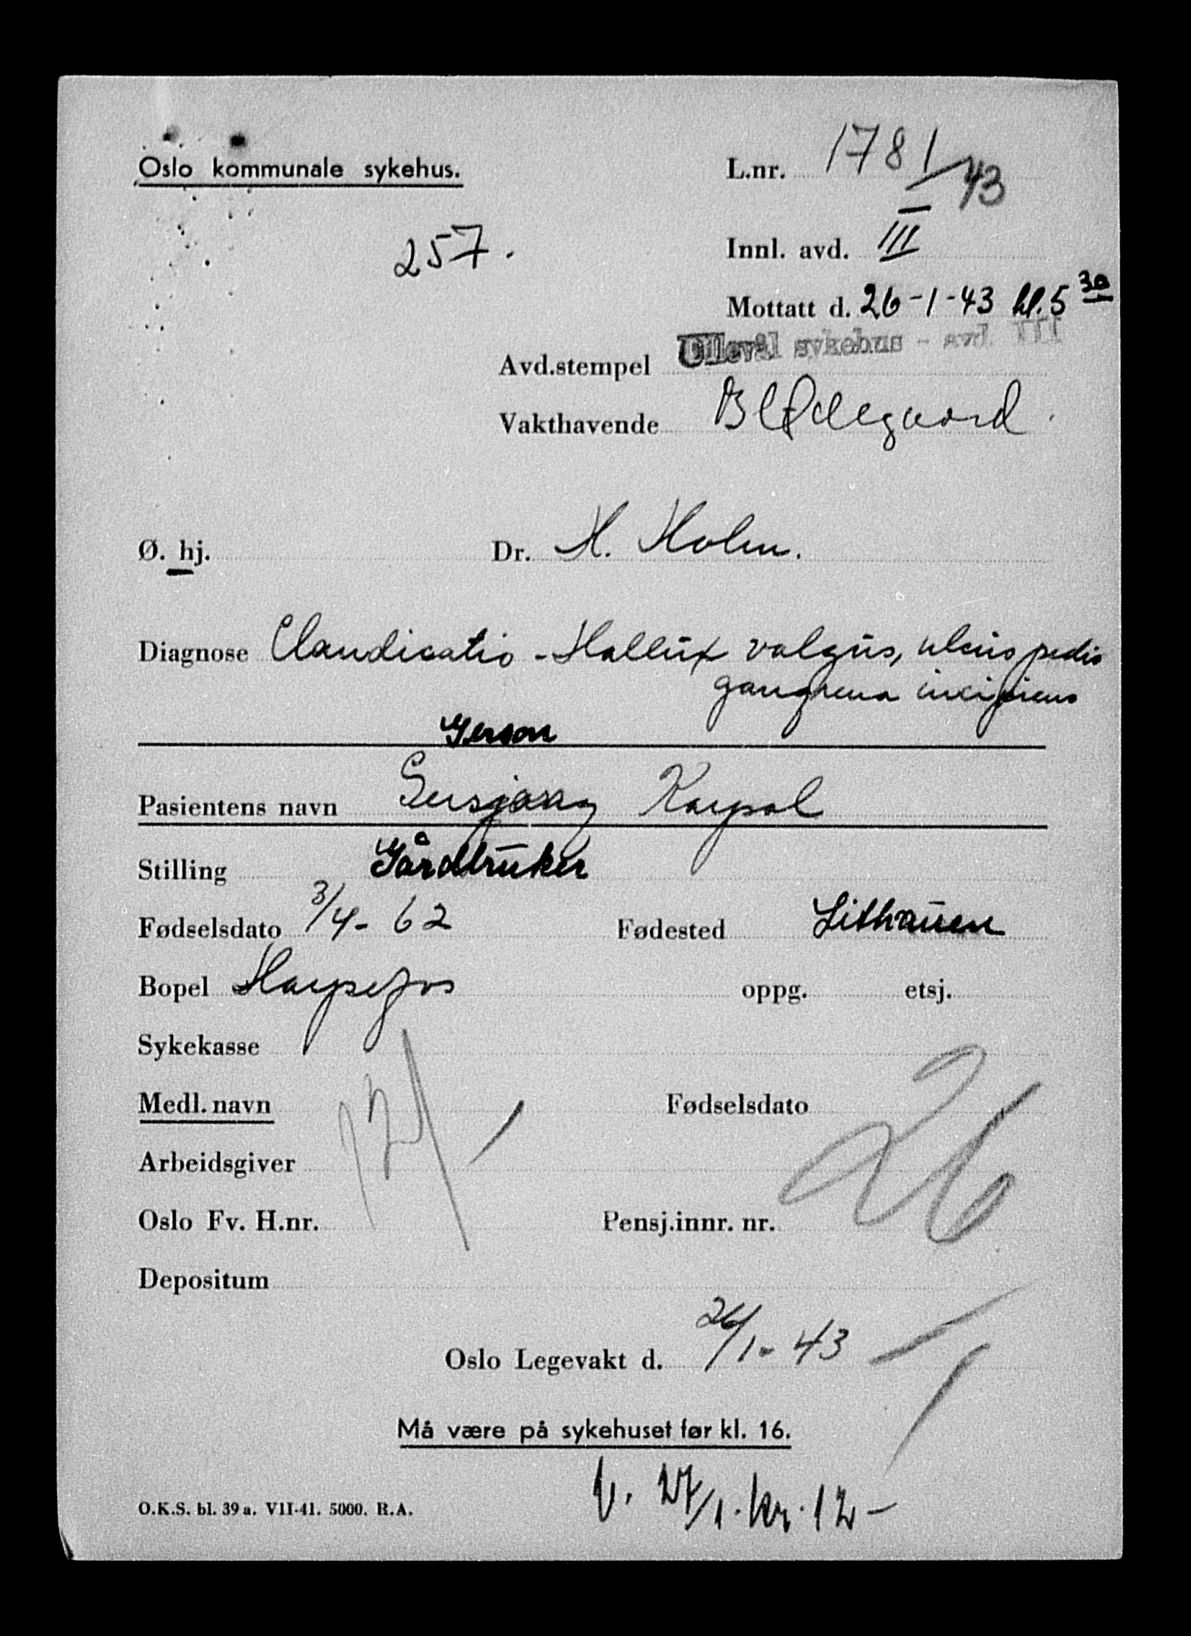 Oslo kommunale sykehus.
L.nr. 1781/43
257.
Innl. avd. III
Mottatt d. 26-1-43 kl. 5 30
Avd.stempel Ullevål sykehus - avd. III
Vakthavende B Ødegaard.
Ø. hj. Dr. H. Holm.
Diagnose Claudicatio - Hallux valgus, ulcus pedis
gangrena incipiens
Gerson
Pasientens navn Karpol
Stilling Gårdbruker
Fødselsdato 3/4-62 Fødested Lithauen
Bopel Harpefos oppg. etsj.
Sykekasse
Medl.navn Fødselsdato
Arbeidsgiver
26
Oslo Fv. H.nr. Pensj.innr. nr.
Depositum
Oslo Legevakt d. 26/1-43
Må være på sykehuset før kl. 16.
27/1. kr. 12-
O.K.S. bl. 39a. VII-41. 5000. R.A.